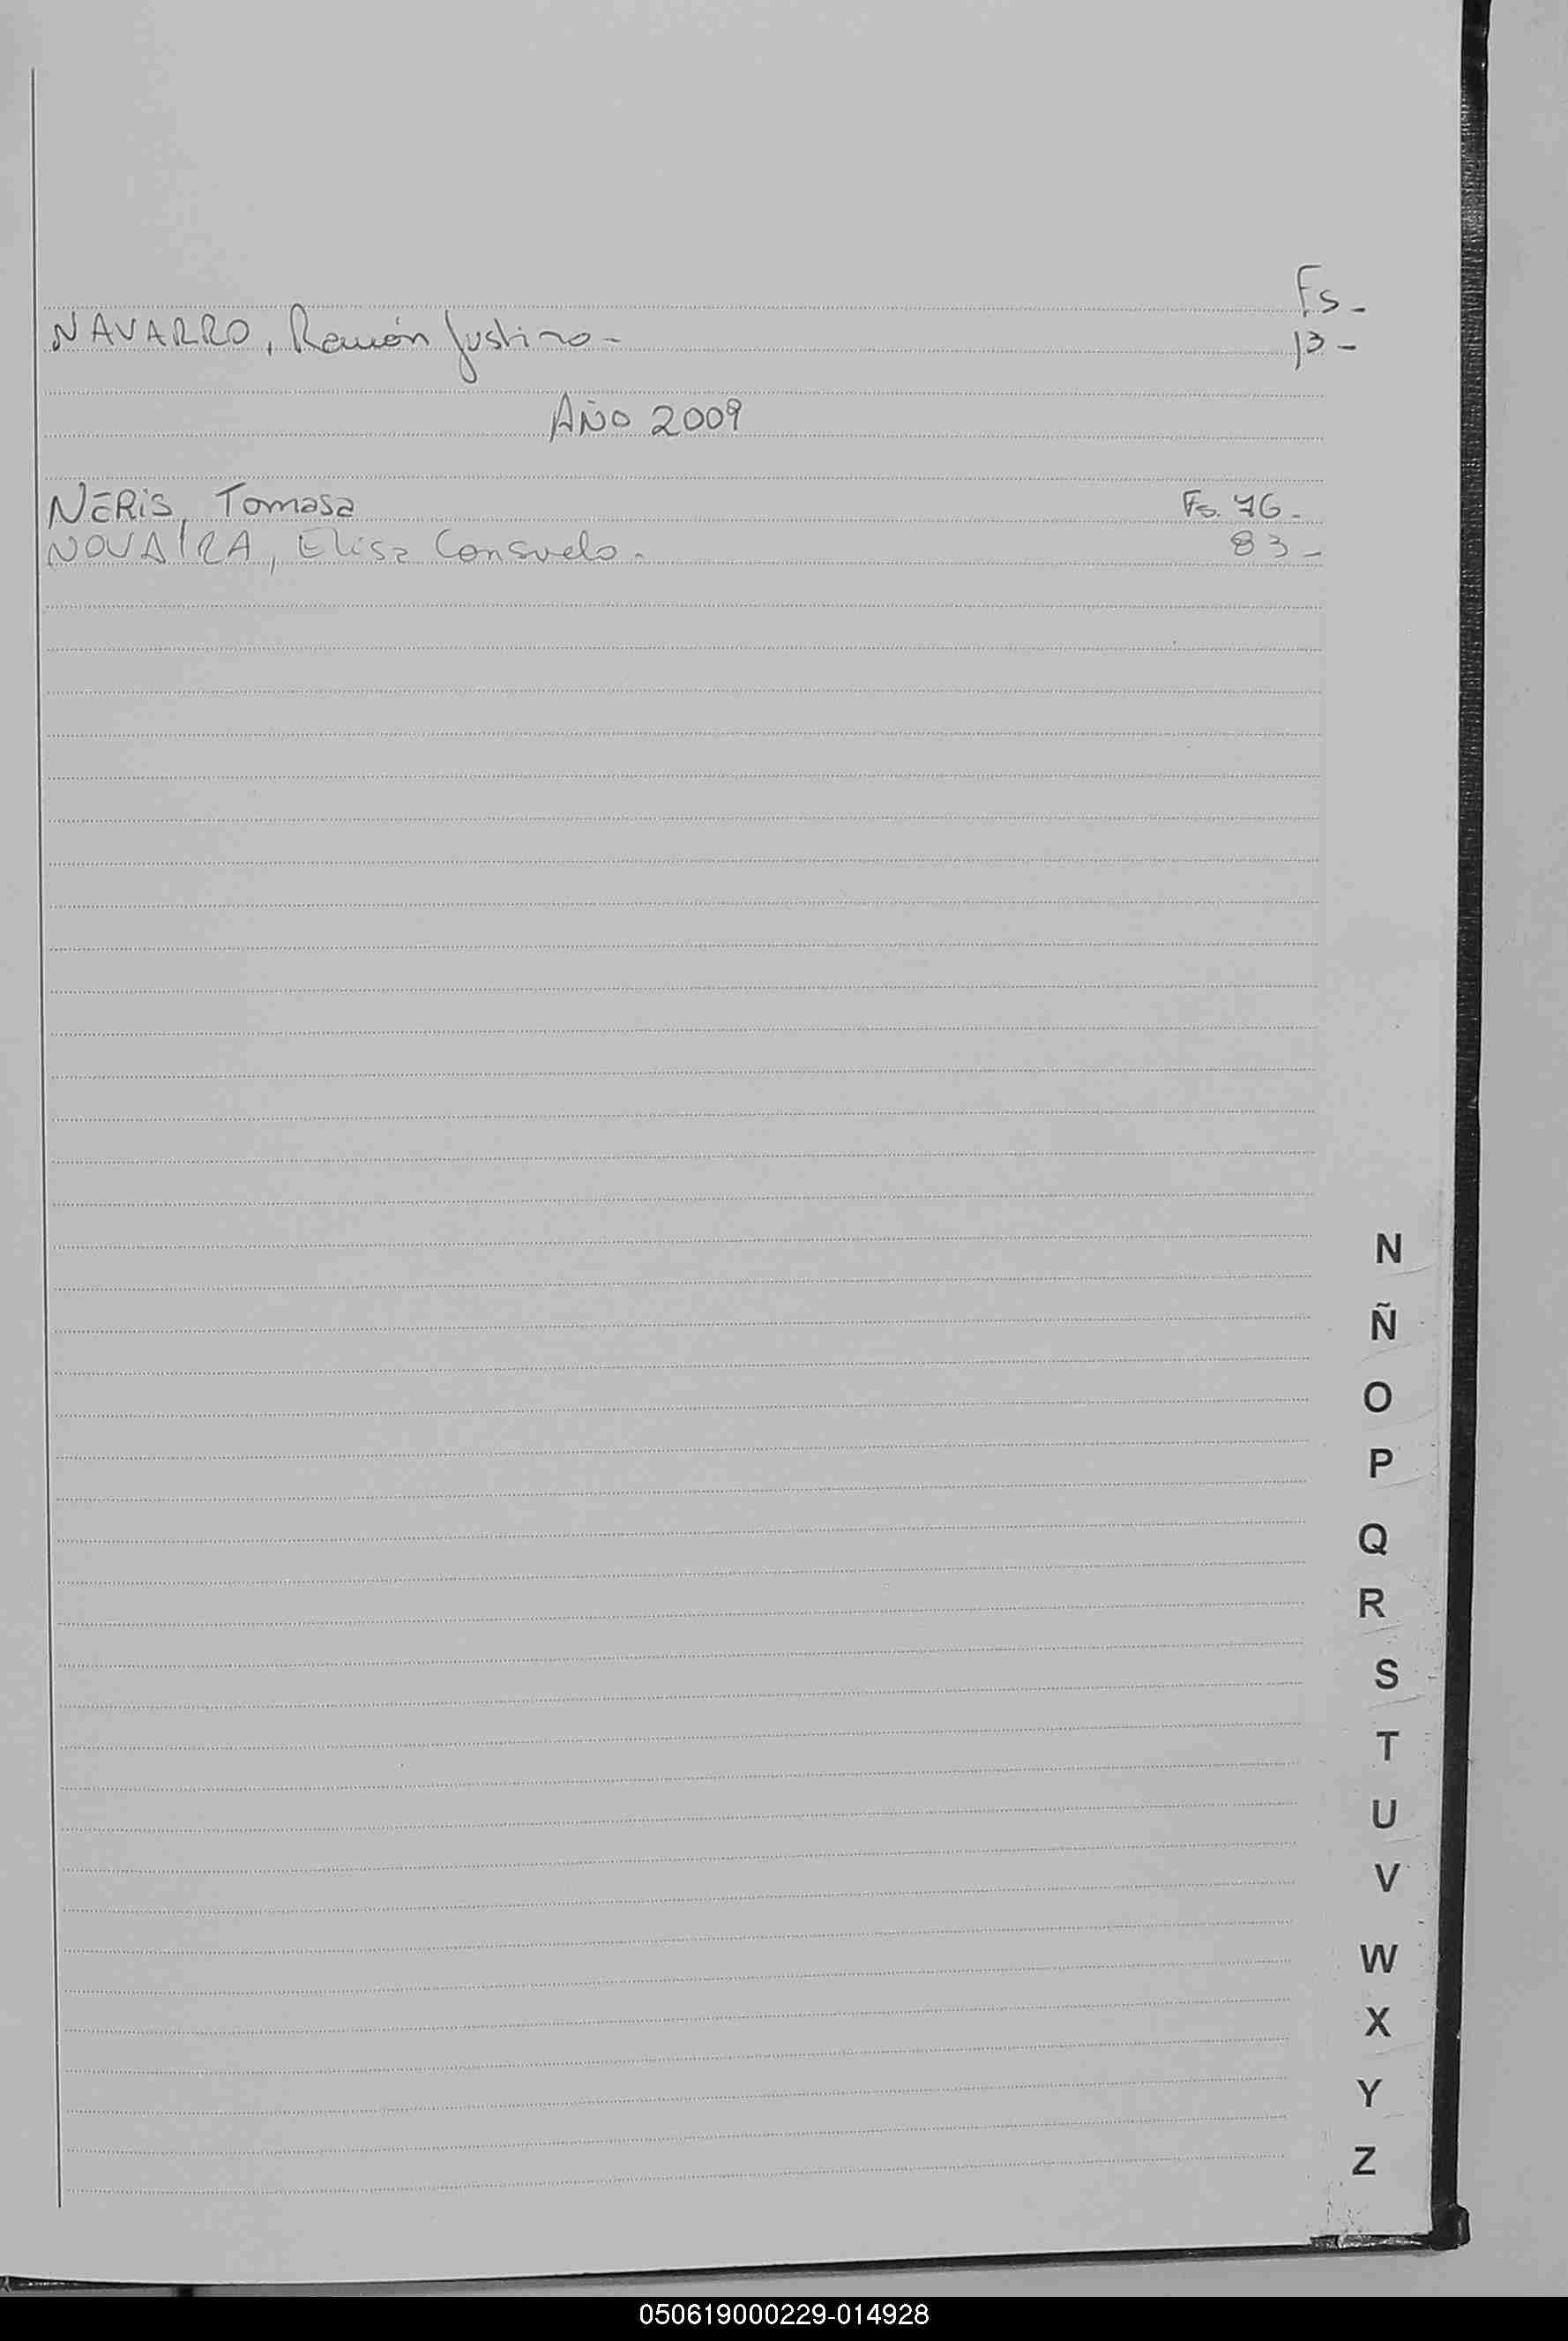 Fs-
NAVARRO, Ramón Justino- 13-
AÑO 2009
NERIS, Tomasa Fs. 76-
NOVAIRA, Elisa Consuelo- 83-
N
Ñ
O
P
Q
R
S
T
U
V
W
X
Y
Z
050619000229-014928